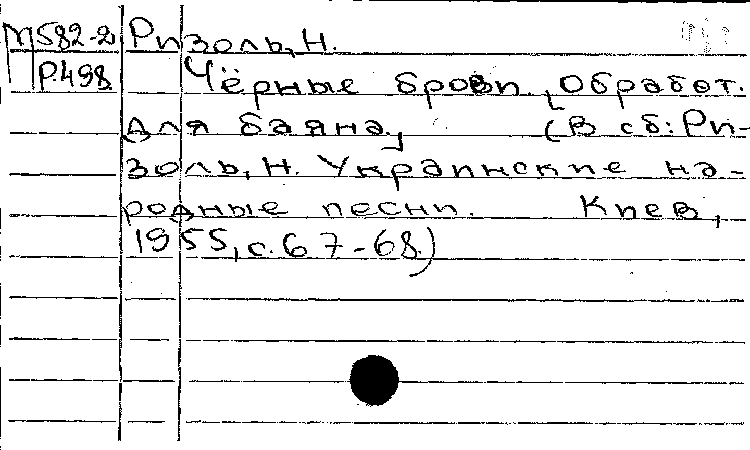 М582-2 Ризоль, Н.
Р498 Чёрные брови. [Обработ.
для баяна] (В сб: Ри-
золь, Н. Украинские на-
родные песни. Киев,
1955, с. 67-68.)